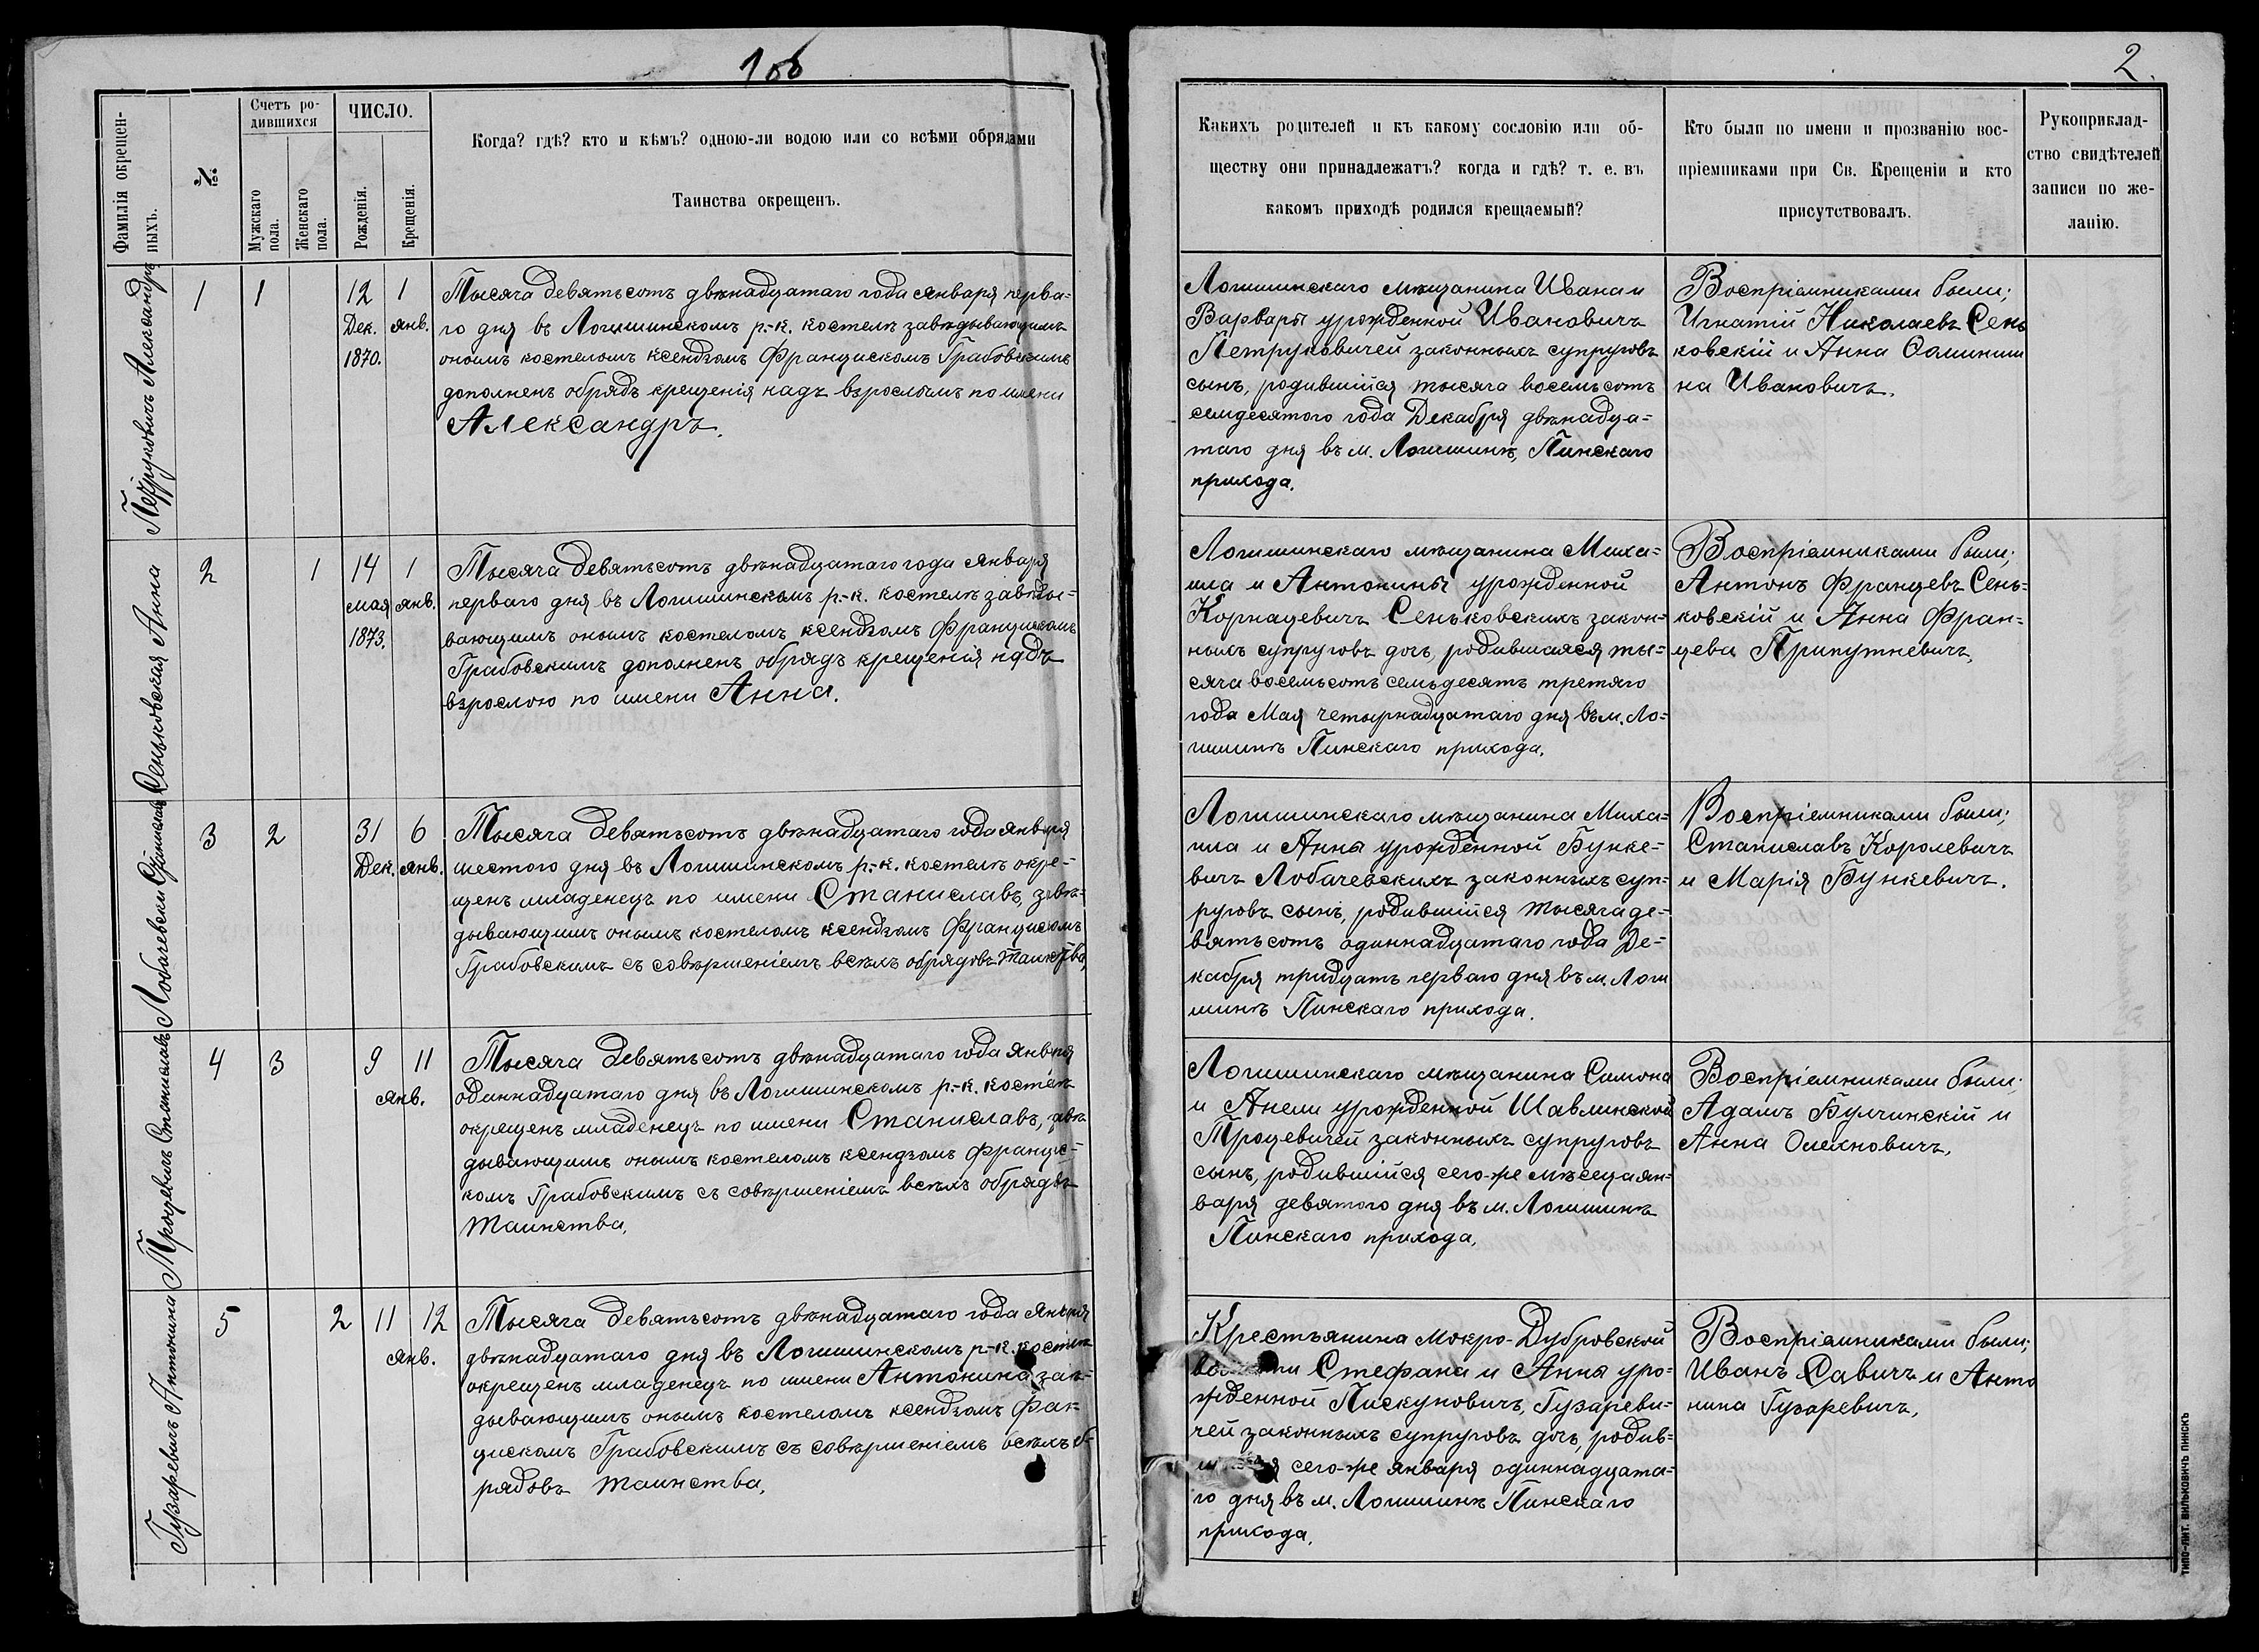 106
2.
Фамилія окрещен-
ныхъ.
№
Счетъ ро-
дившихся
Мужскаго
пола.
Женскаго
пола.
ЧИСЛО.
Рожденія.
Крещенія.
Когда? гдѣ? кто и кѣмъ? одною-ли водою или со всѣми обрядами
Таинства окрещенъ.
Какихъ родителей и къ какому сословію или об-
ществу они принадлежатъ? когда и гдѣ? т. е. въ
какомъ приходѣ родился крещаемый?
Кто были по имени и прозванію вос-
пріемниками при Св. Крещеніи и кто
присутствовалъ.
Рукоприклад-
ство свидѣтелей
записи по же-
ланію.
Петруковичъ Александръ
1
1
12
Дек.
1870.
1
янв.
Тысяча девятьсотъ двѣнадцатаго года января перва-
го дня въ Логишинскомъ р.-к. костелѣ завѣдывающимъ
онымъ костеломъ ксендзомъ Францискомъ Грабовскимъ
дополненъ обрядъ крещенія надъ взрослымъ по имени
Александръ.
Логишинскаго мѣщанина Ивана и
Варвары урожденной Ивановичъ
Петруковичей законныхъ супруговъ
сынъ, родившійся тысяча восемьсотъ
семдесятого года Декабря двѣнадца-
таго дня въ м. Логишинѣ, Пинскаго
прихода.
Воспріемниками были;
Игнатій Николаевъ Сень
ковскій и Анна
на Ивановичъ.
Сеньковская Анна
2
1
14
мая
1873.
1
янв.
Тысяча девятьсотъ двѣнадцатаго года января
перваго дня въ Логишинскомъ р.-к. костелѣ завѣды-
вающимъ онымъ костеломъ ксендзомъ Францискомъ
Грабовскимъ дополненъ обрядъ крещенія надъ
взрослою по имени Анна.
Логишинскаго мѣщанина Миха-
ила и Антонины урожденной
Корнацевичъ Сеньковскихъ закон-
ныхъ супруговъ дочь, родившаяся ты-
сяча восемьсотъ семьдесятъ третяго
года Мая четырнадцатаго дня въ м. Ло-
гишинѣ Пинскаго прихода.
Воспріемниками были;
Антонъ Францевъ Сень-
ковскій и Анна Фран-
цева Припутневичъ,
Лобачевски Станиславъ
3
2
31
Дек.
6
янв.
Тысяча девятьсотъ двѣнадцатаго года января
шестого дня въ Логишинскомъ р.-к. костелѣ окре-
щенъ младенецъ по имени Станиславъ, завѣ-
дывающимъ онымъ костеломъ ксендзомъ Францискомъ
Грабовскимъ съ совершеніемъ всѣхъ обрядовъ таинства,
Логишинскаго мѣщанина Миха-
ила и Анны урожденной Бунке-
вичъ Лобачевскихъ законныхъ суп-
руговъ сынъ, родившійся тысяча де-
вятьсотъ одиннадцатаго года Де-
кабря тридцать перваго дня въ м. Логи
шинѣ Пинскаго прихода.
Воспріемниками были;
Станиславъ Королевичъ
и Марія Бункевичъ.
Троцевичъ Станиславъ
4
3
9
11
янв.
Тысяча девятьсотъ двѣнадцатаго года января
одиннадцатаго дня въ Логишинскомъ р.-к. костелѣ
окрещенъ младенецъ по имени Станиславъ, завѣ
дывающимъ онымъ костеломъ ксендзомъ Францис-
комъ Грабовскимъ съ совершеніемъ всѣхъ обрядовъ
таинства.
Логишинскаго мѣщанина Симона
и Анели урожденной Шавлинской
Троцевичей законныхъ супруговъ
сынъ, родившійся сего-же мѣсеца ян-
варя девятого дня въ м. Логишинѣ
Пинскаго прихода,
Воспріемниками были;
Адамъ Булчинскій и
Анна Олехновичъ,
Гузаревичъ Антонина
5
2
11
12
янв.
Тысяча девятьсотъ двѣнадцатаго года января
двѣнадцатаго дня въ Логишинскомъ р-к. костелѣ
окрещенъ младенецъ по имени Антонина завѣ-
дывающимъ онымъ костеломъ ксендзомъ Фран-
цискомъ Грабовскимъ съ совершеніемъ всѣхъ об-
рядовъ таинства,
Крестьянина Мокро-Дубровской
волости Стефана и Анны уро-
жденной Пискуновичъ, Гузареви-
чей законныхъ супруговъ дочь, родив-
шаяся сего-же января одиннадцата-
го дня въ м. Логишинѣ Пинскаго
прихода.
Воспріемниками были;
Иванъ Савичъ и Анто
нина Гузаревичъ,
ТИПО-ЛИТ. ВИЛЬКОВИЧЪ ПИНСКЪ